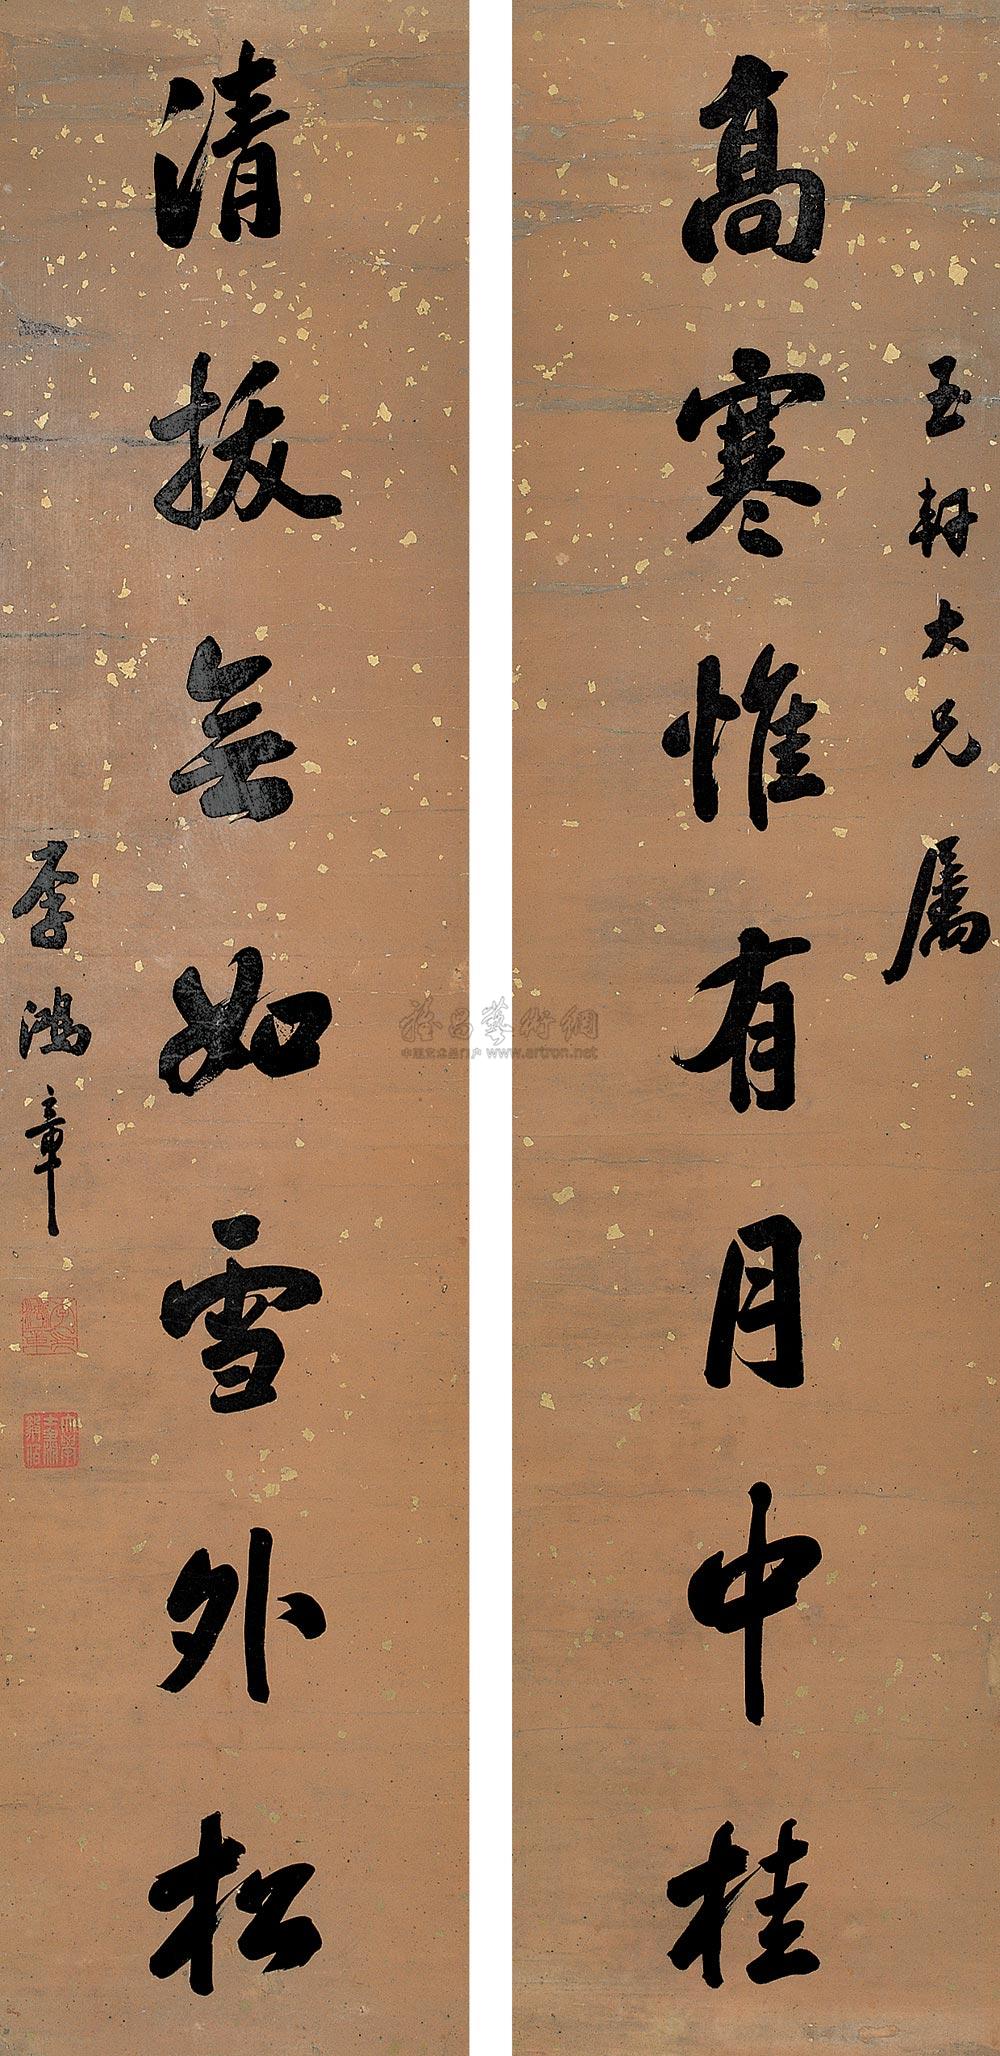 玉軒大兄屬
高寒惟有月中桂
清拔無如雪外松
李鴻章
雅昌藝術網
中国艺术品门户 www.artron.net